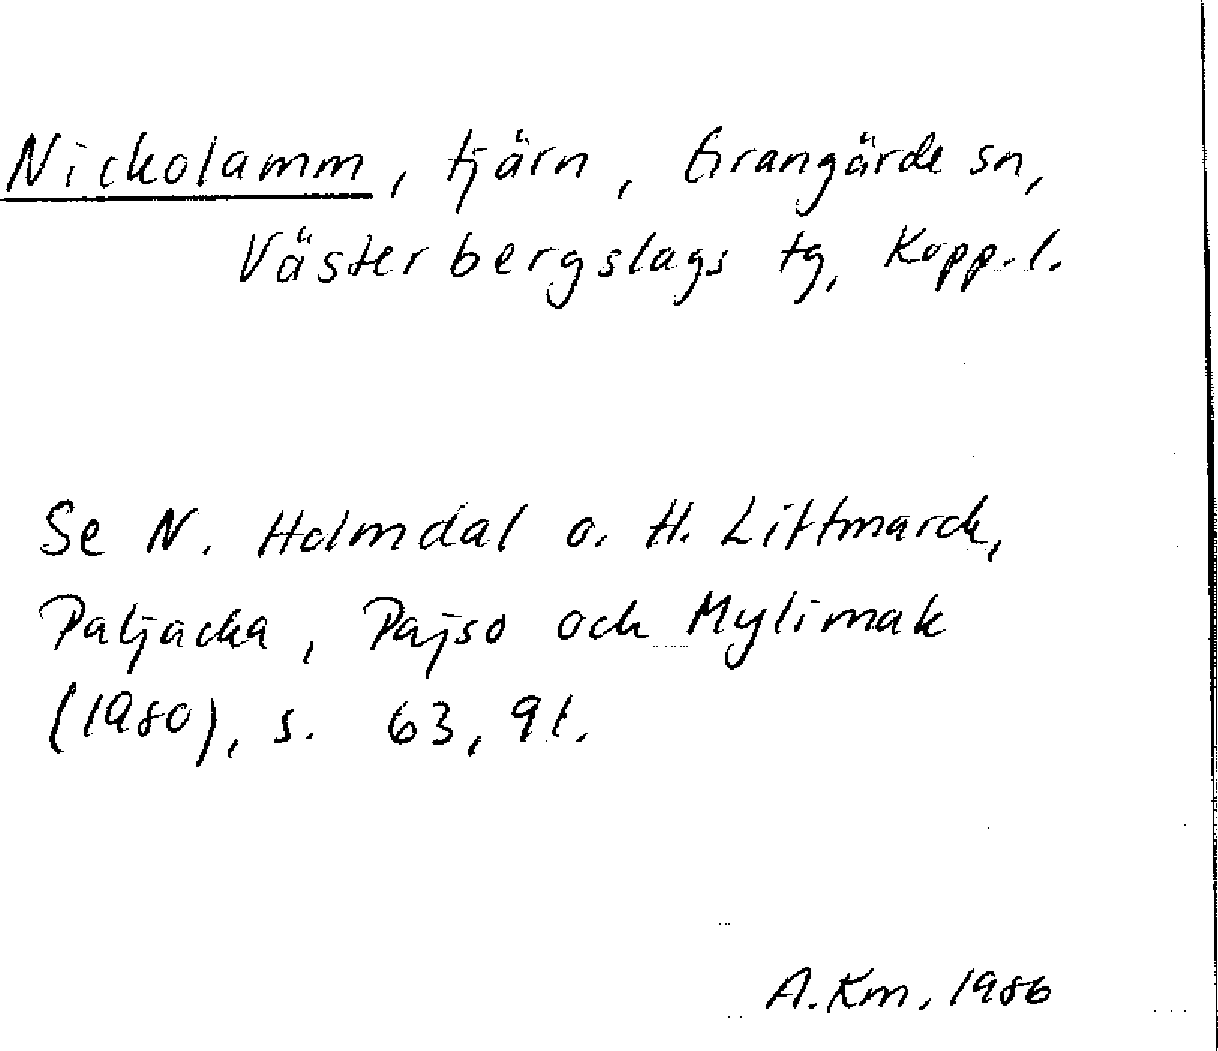 Nickolamm, tjärn, Grangärde sn,
Västerbergslags tg, Kopp. l.
Se N. Holmdal o. H. Littmarck,
Paljacka, Pajso och Mylimak
(1980), s. 63, 91.
A. Km, 1986